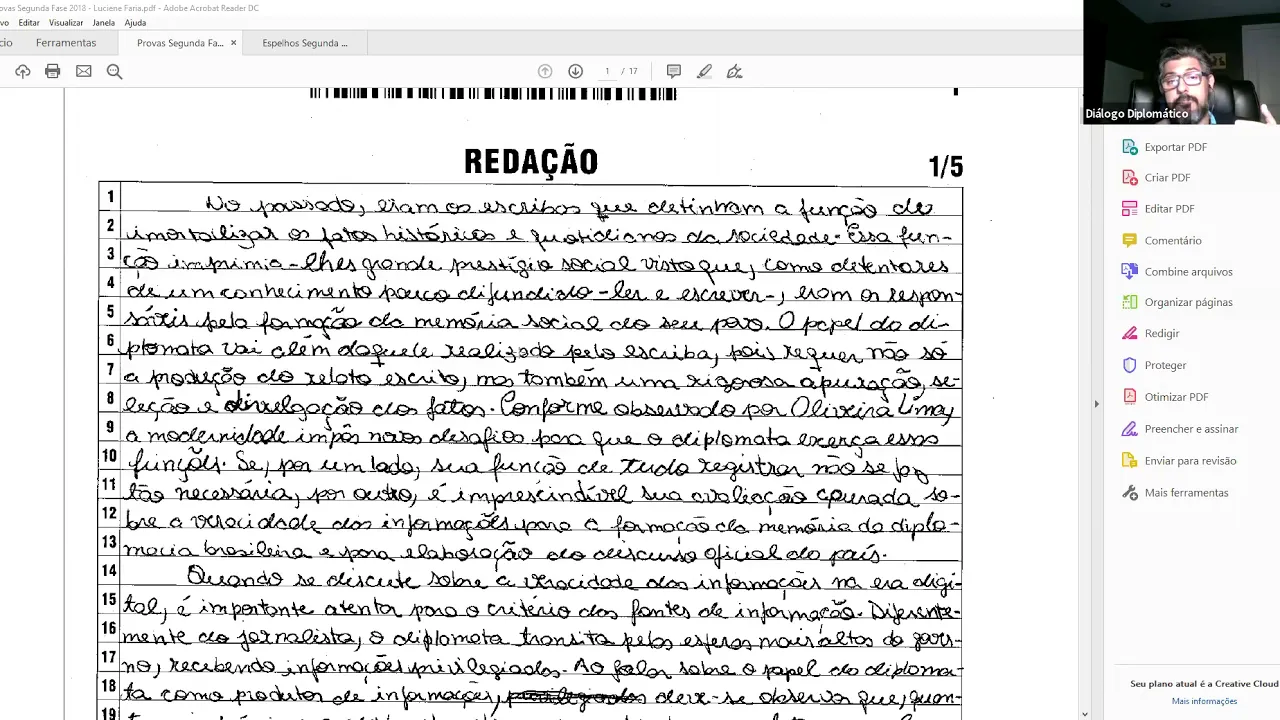 ovas Segunda Fase 2018 - Luciene Faria.pdf - Adobe Acrobat Reader DC
vo Editar Visualizar Janela Ajuda
cio Ferramentas Provas Segunda Fa... × Espelhos Segunda ...
1 / 17
Diálogo Diplomático
REDAÇÃO 1/5
1 No passado, eram os escribas que detinham a função de
2 imortalizar os fatos históricos e quotidianos da sociedade. Essa fun-
3 ção imprimia-lhes grande prestígio social visto que, como detentores
4 de um conhecimento pouco difundido -ler e escrever-, eram os respon-
5 sáveis pela formação da memória social do seu povo. O papel do di-
6 plomata vai além daquele realizado pelo escriba, pois requer não só
7 a produção do relato escrito, mas também uma rigorosa apuração, se-
8 leção e divulgação dos fatos. Conforme observado por Oliveira Lima,
9 a modernidade impôs novos desafios para que o diplomata exerça essas
10 funções. Se, por um lado, sua função de tudo registrar não se faz
11 tão necessária, por outro, é imprescindível sua avaliação apurada so-
12 bre a veracidade das informações para a formação da memória da diplo-
13 macia brasileira e para elaboração do discurso oficial do país.
14 Quando se discute sobre a veracidade das informações na era digi-
15 tal, é importante atentar para o critério das fontes de informação. Diferente-
16 mente do jornalista, o diplomata transita pelas esferas mais altas do gover-
17 no, recebendo informações privilegiadas. Ao falar sobre o papel do diploma-
18 ta como produtor de informações, deve-se observar que, quan-
19
Exportar PDF
Criar PDF
Editar PDF
Comentário
Combine arquivos
Organizar páginas
Redigir
Proteger
Otimizar PDF
Preencher e assinar
Enviar para revisão
Mais ferramentas
Seu plano atual é a Creative Cloud
Mais informações